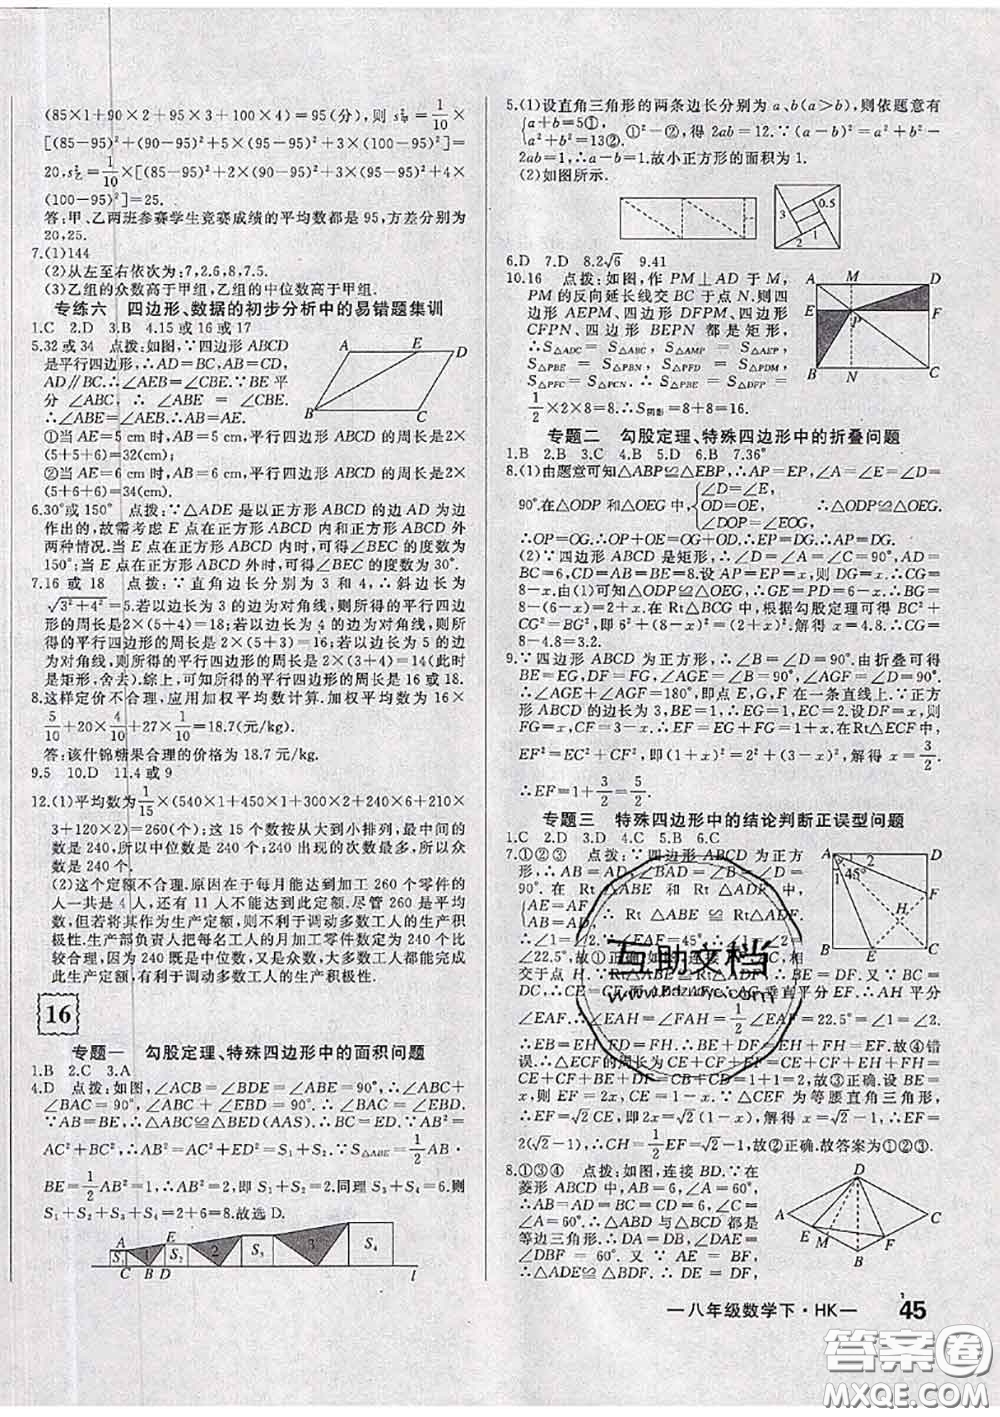 (85×1+90×2+95×3+100×4)=95(分),则s²甲=1/10×
[(85-95)²+(90-95)²×2+(95-95)²×3+(100-95)²]=
20,s²乙=1/10×[(85-95)²+2×(90-95)²+(95-95)²+4×
(100-95)²]=25.
答:甲、乙两班参赛学生竞赛成绩的平均数都是95,方差分别为
20,25.
7.(1)144
(2)从左至右依次为:7,2.6,8,7.5.
(3)乙组的众数高于甲组,乙组的中位数高于甲组.
专练六 四边形、数据的初步分析中的易错题集训
1.C 2.D 3.B 4.15或16或17
5.32或34 点拨:如图,∵四边形ABCD
是平行四边形,∴AD=BC,AB=CD,
AD∥BC.∴∠AEB=∠CBE.∵BE平
分∠ABC,∴∠ABE=∠CBE.
∴∠ABE=∠AEB.∴AB=AE.
A E D
B C
①当AE=5 cm时,AB=5 cm,平行四边形ABCD的周长是2×
(5+5+6)=32(cm);
②当AE=6 cm时,AB=6 cm,平行四边形ABCD的周长是2×
(5+6+6)=34(cm).
6.30°或150° 点拨:∵△ADE是以正方形ABCD的边AD为边
作出的,故需考虑E点在正方形ABCD内和正方形ABCD外
两种情况.当E点在正方形ABCD内时,可得∠BEC的度数为
150°;当E点在正方形ABCD外时,可得∠BEC的度数为30°.
7.16或18 点拨:∵直角边长分别为3和4,∴斜边长为
√3²+4²=5.若以边长为3的边为对角线,则所得的平行四边
形的周长为2×(5+4)=18;若以边长为4的边为对角线,则所
得的平行四边形的周长为2×(5+3)=16;若以边长为5的边
为对角线,则所得的平行四边形的周长为2×(3+4)=14(此时
是矩形,舍去).综上,可知所得的平行四边形的周长是16或18.
8.这样定价不合理,应用加权平均数计算.加权平均数为16×
5/10+20×4/10+27×1/10=18.7(元/kg).
答:该什锦糖果合理的价格为18.7元/kg.
9.5 10.D 11.4或9
12.(1)平均数为1/15×(540×1+450×1+300×2+240×6+210×
3+120×2)=260(个);这15个数按从大到小排列,最中间的
数是240,所以中位数是240;240出现的次数最多,所以众
数是240.
(2)这个定额不合理.原因在于每月能达到加工260个零件的
人一共是4人,还有11人不能达到此定额.尽管260是平均
数,但若将其作为生产定额,则不利于调动多数工人的生产积
极性.生产部负责人把每名工人的月加工零件数定为240个比
较合理,因为240既是中位数,又是众数,大多数工人都能完成
此生产定额,有利于调动多数工人的生产积极性.
16
专题一 勾股定理、特殊四边形中的面积问题
1.B 2.C 3.A
4.D 点拨:如图,∠ACB=∠BDE=∠ABE=90°,∴∠ABC+
∠BAC=90°,∠ABC+∠EBD=90°.∴∠BAC=∠EBD.
∵AB=BE,∴△ABC≌△BED(AAS).∴BC=ED.∵AB²=
AC²+BC²,∴AB²=AC²+ED²=S₁+S₂.∵S△ABE=1/2AB·
BE=1/2AB²=1,∴AB²=2,即S₁+S₂=2.同理S₃+S₄=6.则
S₁+S₂+S₃+S₄=2+6=8.故选D.
A E
S₁ 1 S₂ 2 S₃ 3 S₄
C B D l
5.(1)设直角三角形的两条边长分别为a、b(a>b),则依题意有
{a+b=5①,a²+b²=13②.①²-②,得2ab=12.∵(a-b)²=a²+b²-
2ab=1,∴a-b=1.故小正方形的面积为1.
(2)如图所示.
3 0.5
2 1
6.D 7.D 8.2√6 9.41
10.16 点拨:如图,作PM⊥AD于M,
PM的反向延长线交BC于点N.则四
边形AEPM、四边形DFPM、四边形
CFPN、四边形BEPN都是矩形,
∴S△ADC=S△ABC,S△AMP=S△AEP,
S△PBE=S△PBN,S△PFD=S△PDM,
S△PFC=S△PCN,∴S△PBE=S△DFP=
1/2×2×8=8.∴S阴影=8+8=16.
A M D
E P F
B N C
专题二 勾股定理、特殊四边形中的折叠问题
1.B 2.B 3.C 4.B 5.D 6.B 7.36°
8.(1)由题意可知△ABP≌△EBP,∴AP=EP,∠A=∠E=
90°.在△ODP和△OEG中,{∠D=∠E,OD=OE,∠DOP=∠EOG.∴△ODP≌△OEG.
∴OP=OG.∴OP+OE=OG+OD.∴EP=DG.∴AP=DG.
(2)∵四边形ABCD是矩形,∴∠D=∠A=∠C=90°,AD=
BC=6,CD=AB=8.设AP=EP=x,则DG=x.∴CG=
8-x.由(1)可知△ODP≌△OEG,∴PD=GE=6-x.∴BG=
8-(6-x)=2+x.在Rt△BCG中,根据勾股定理可得BC²+
CG²=BG²,即6²+(8-x)²=(2+x)².解得x=4.8.∴CG=
8-4.8=3.2.
9.∵四边形ABCD为正方形,∴∠B=∠D=90°.由折叠可得
BE=EG,DF=FG,∠AGE=∠B=90°,∠AGF=∠D=90°,
∴∠AGE+∠AGF=180°,即点E,G,F在一条直线上.∵正方
形ABCD的边长为3,BE=1,∴BE=EG=1,CE=2.设DF=x,则
FG=x,CF=3-x.∴EF=EG+FG=1+x.在Rt△ECF中,
EF²=EC²+CF²,即(1+x)²=2²+(3-x)²,解得x=3/2.
∴EF=1+3/2=5/2.
专题三 特殊四边形中的结论判断正误型问题
1.C 2.D 3.D 4.C 5.B 6.C
7.①②③ 点拨:∵四边形ABCD为正方
形,∴AB=AD,∠BAD=∠B=∠D=
90°.在Rt△ABE和Rt△ADF中,
{AE=AF,AB=AD,∴Rt△ABE≌Rt△ADF.
∴∠1=∠2.∵∠EAF=45°,∴∠1=∠2
=22.5°,故①正确;
A 2 D
45°
1 F
H
B E C
∠EAF.∴∠EAH=∠FAH=22.5°=∠1=∠2.
∴△ECF的周长为CE+CF+EF=CE+CF+EH+FH=
形,∴EF=√2CE,即2x=√2(1-x),解得x=√2-1.∴EF=
2(√2-1).∴CH=1/2EF=√2-1,故②正确.故答案为①②③.
8.①③④ 点拨:如图,连接BD.∵在
菱形ABCD中,AB=AD,∠A=60°,
∴AB=AD=BC=CD,∠C=∠A
=60°.∴△ABD与△BCD都是
等边三角形.∴DA=DB,∠DAE=
∠DBF=60°.又∵AE=BF,
∴△ADE≌△BDF.∴DE=DF,∠ADE=∠BDF.
D
A C
E M F
B
互助文档
答案圈
MXQE.COM
—八年级数学下·HK— 45